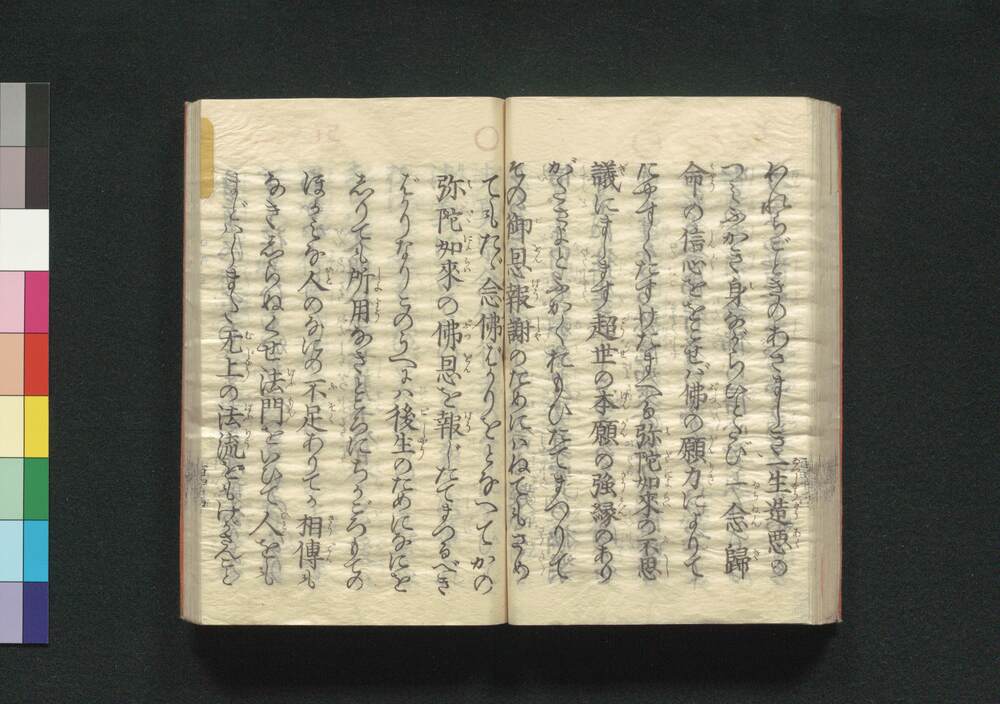 われらごときのあさましき一生造悪の
つみふかき身ながらひとたび一念歸
命の信心ををこせば佛の願力によりて
たやすくたすけたまへる弥陀如來の不思
議にまします超世の本願の強縁のあり
がたさよとふかくおもひたてまつりて
その御恩報謝のためにはねてもさめ
てもたゞ念佛ばかりをとなへてかの
弥陀如來の佛恩を報じたてまつるべき
ばかりなりこのうへには後生のためになにを
しりても所用なきところにちかごろもての
ほかみな人のなにの不足ありてか相傳も
なきしらぬくせ法門をいひて人をも
まどはしまた无上の法流をもけがさんこと